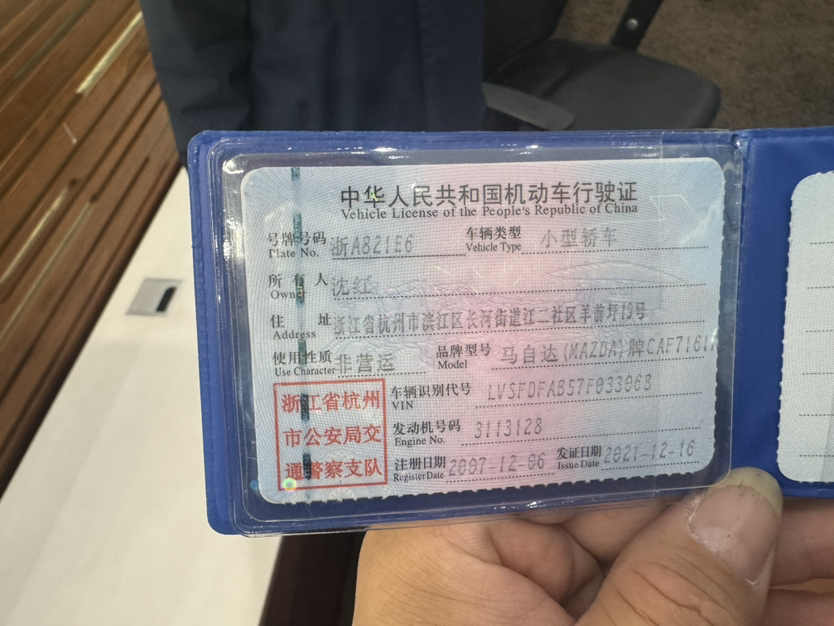 中华人民共和国机动车行驶证
Vehicle License of the People's Republic of China
号牌号码 浙A821E6 车辆类型 小型轿车
Plate No. Vehicle Type
所有人 沈红
Owner
住址 浙江省杭州市滨江区长河街道江二社区羊前坪19号
Address
使用性质 非营运 品牌型号 马自达(MAZDA)牌CAF7161
Use Character Model
浙江省杭州 车辆识别代号 LVSFDFAB57F033068
VIN
市公安局交 发动机号码 3113128
Engine No.
通警察支队 注册日期 2007-12-06 发证日期 2021-12-16
Register Date Issue Date